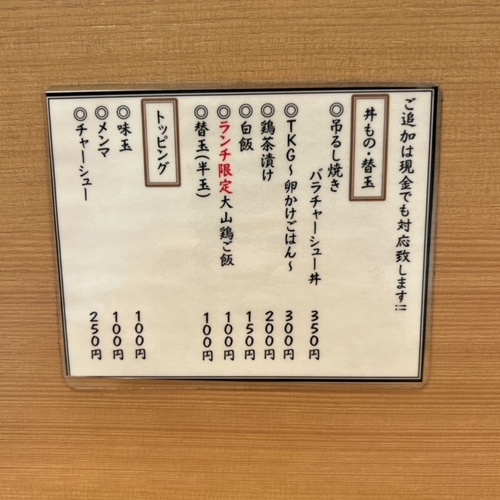 ご追加は現金でも対応致します!!!
丼もの・替玉
◎吊るし焼き
バラチャーシュー丼 350円
◎TKG～卵かけごはん～ 300円
◎鶏茶漬け 200円
◎白飯 150円
◎ランチ限定大山鶏ご飯 100円
◎替玉(半玉) 100円
トッピング
◎味玉 100円
◎メンマ 100円
◎チャーシュー 250円